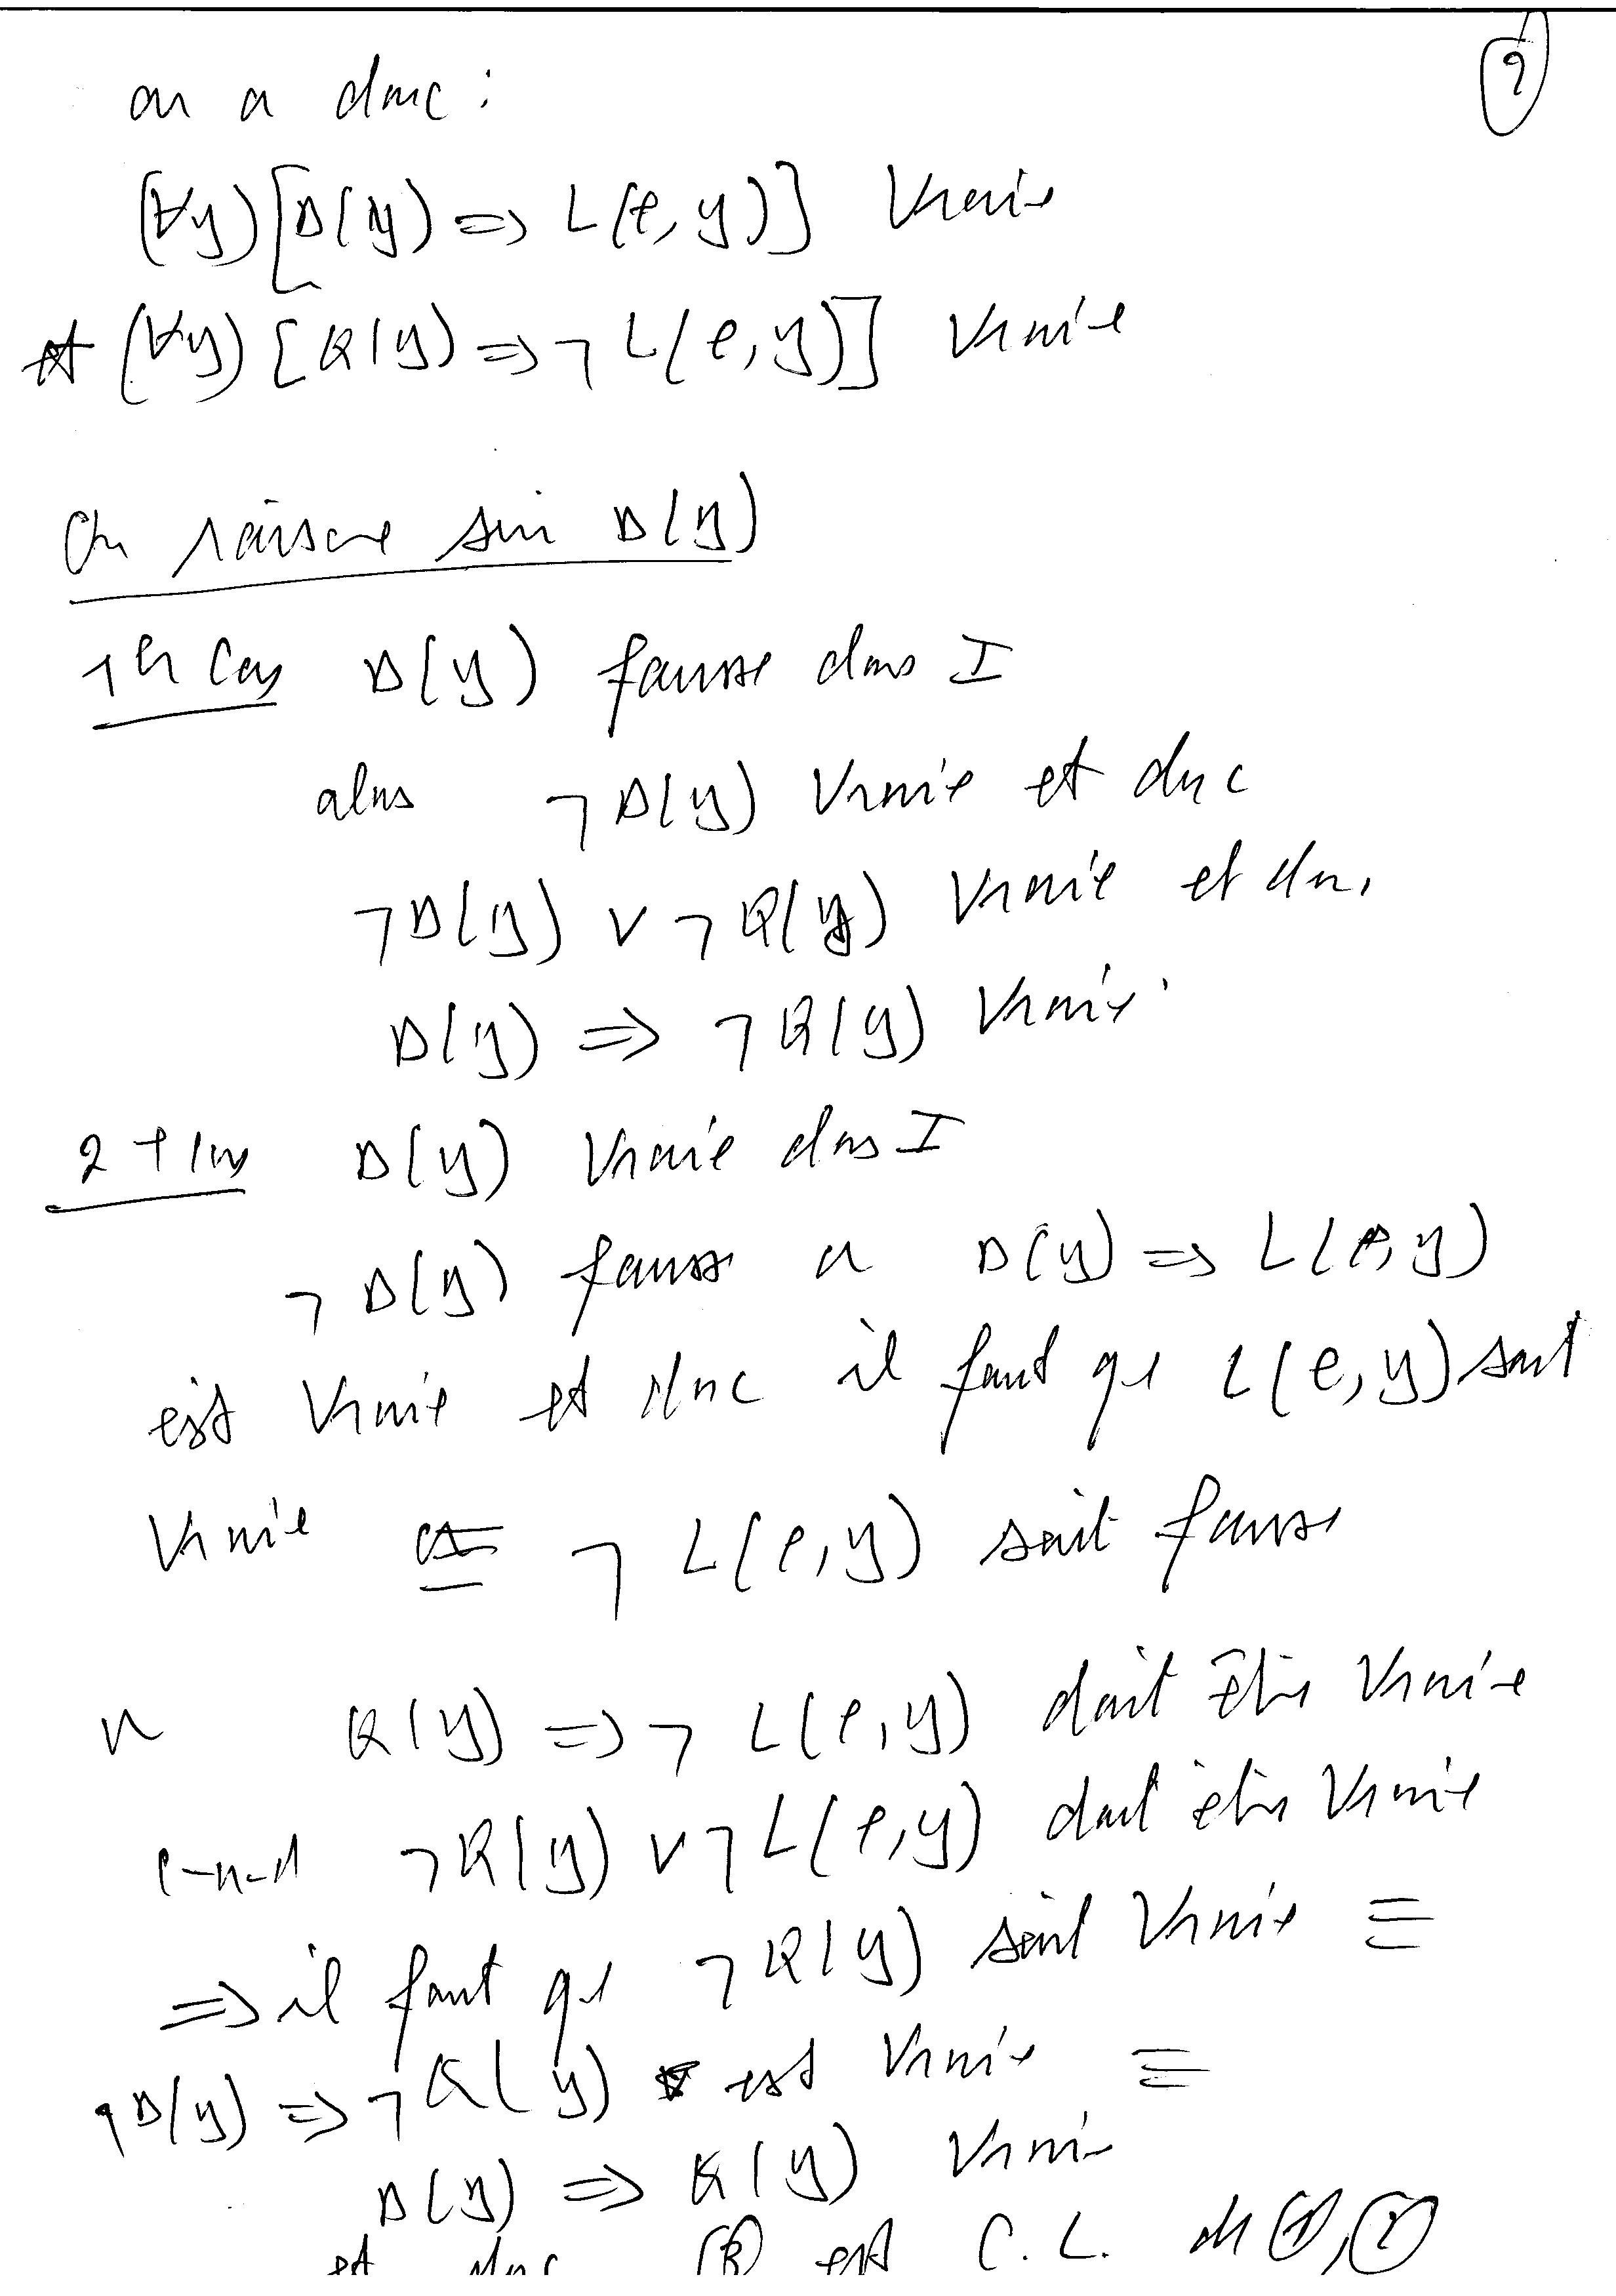 9
on a donc :
(∀y)[D(y) => L(e,y)] Vraie
et (∀y)[R(y) => ¬ L(e,y)] Vraie
On raisonne sur D(y)
1er Cas D(y) fausse dans I
alors ¬ D(y) Vraie et donc
¬D(y) ∨ ¬ R(y) Vraie et donc
D(y) => ¬ R(y) Vraie.
2e Cas D(y) Vraie dans I
¬ D(y) fausse or D(y) => L(e,y)
est Vraie et donc il faut que L(e,y) soit
Vraie et ¬ L(e,y) soit fausse
or R(y) => ¬ L(e,y) doit être Vraie
c-a-d ¬R(y) ∨ ¬ L(e,y) doit être Vraie
=> il faut que ¬ R(y) soit Vraie ≡
D(y) => ¬ R(y) est Vraie ≡
D(y) => R(y) Vraie
et donc est C.L. de (1), (2)